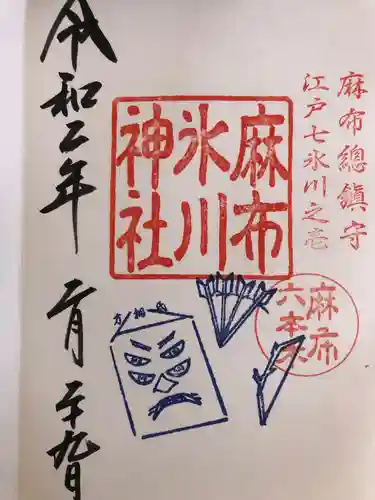 麻布總鎮守
江戸七氷川之壱
麻布
氷川
神社
麻布
六本木
方相面
令和二年 二月 二十九日